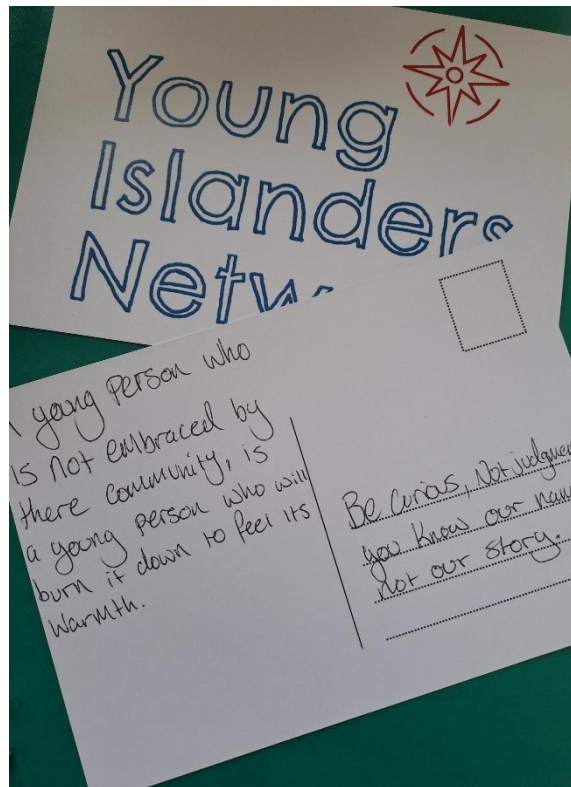 Young
Islanders
Netw
young person who
is not embraced by
there community, is
a young person who will
burn it down to feel its
warmth.
Be curious, Not judgmen
you know our nam
not our story.